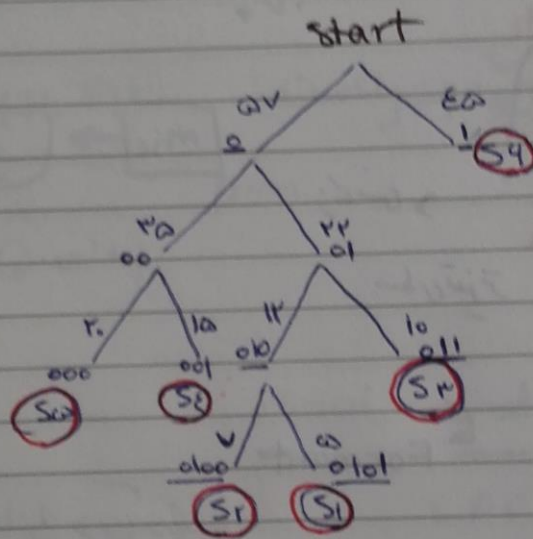 start
۵۷ ٤۵
0 1 S۶
۳۵ ۲۲
00 01
۲۰ ۱۵ ۱۲ ۱۰
000 001 010 011
S۵ S٤ S۳
۷ ۵
0100 0101
S۲ S۱